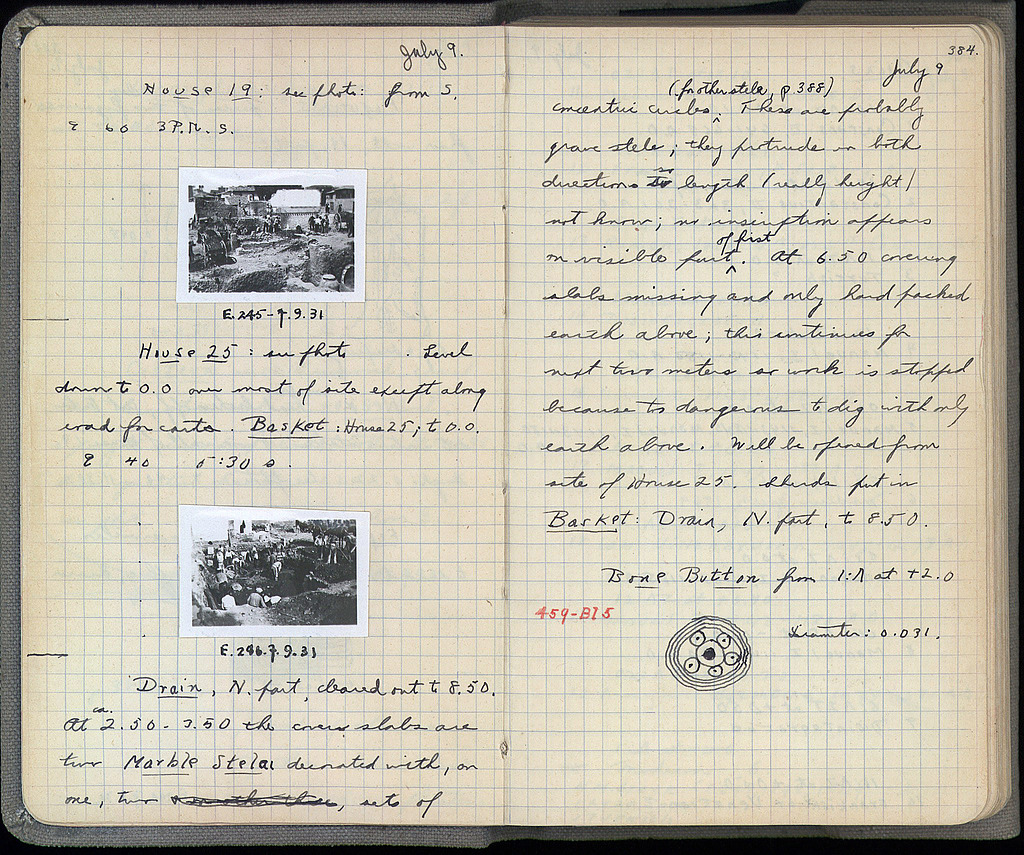 July 9.
House 19: see photo: from S.
60 3 P.M. S.
E.245-7.9.31
House 25: see photo . Level
down to 0.0 over most of site except along
road for carts. Basket: House 25; to 0.0.
40 5:30 s.
E.246.7.9.31
Drain, N. part, cleared out to 8.50.
At ca. 2.50 - 3.50 the cover slabs are
two Marble Stelai decorated with, on
one, two sets of
384.
July 9
(for other stele, p. 388)
concentric circles. These are probably
grave stele; they protrude in both
directions so length (really height)
not known; no inscription appears
on visible part of first. At 6.50 covering
slabs missing and only hard packed
earth above; this continues for
next two meters so work is stopped
because to dangerous to dig with only
earth above. Will be opened from
site of House 25. Sherds put in
Basket: Drain, N. part, to 8.50.
Bone Button from at +2.0
459-BI5
Diameter: 0.031.